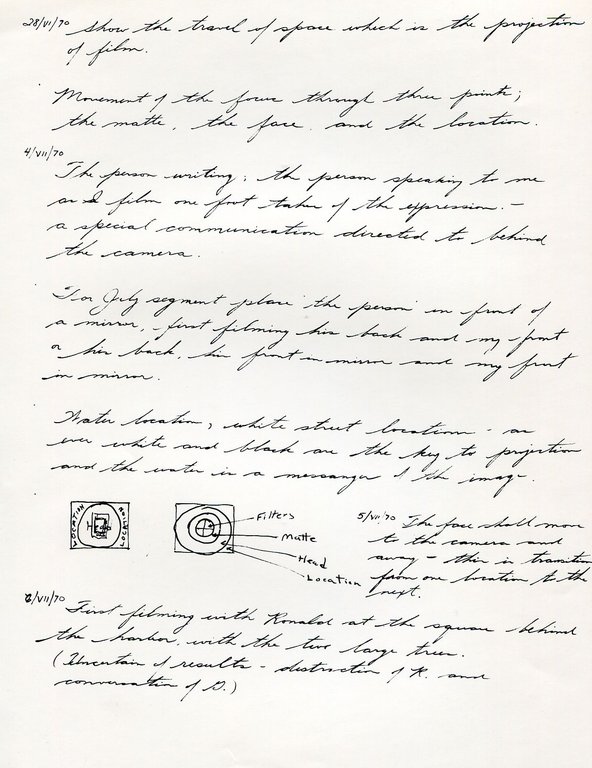 28/VI/70 Show the travel of space which is the projection
of film.
Movement of the focus through three points;
the matte, the face, and the location.
4/VII/70
The person writing; the person speaking to me
as I film one foot taken of the expression. -
a special communication directed to behind
the camera.
For July segment place the person in front of
a mirror, first filming his back and my front
or his back, his front in mirror and my front
in mirror.
Water location, white street location - as
ever white and black are the key to projection
and the water is a messanger of the image.
LOCATION
Head
LOCATION
Filters
Matte
Head
Location
5/VII/70 The face shall move
to the camera and
away - this is transition
from one location to the
next.
6/VII/70
First filming with Ronald at the square behind
the harbor, with the two large trees.
(Uncertain of results - distraction of R. and
conversation of D.)